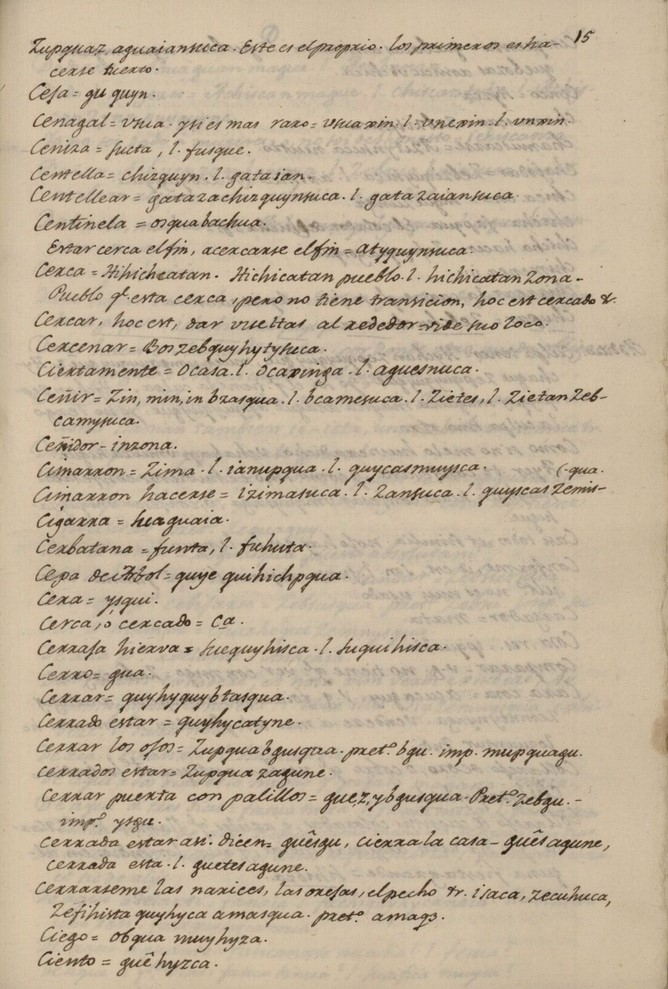 15
Zupquaz aguaiansuca. Este es el proprio. los primeros es ha-
cerse tuerto.
Cesa = gu quyn.
Cenagal = vsua. ysi es mas raro = vsuaxin. l. vnexin. l. vnxin.
Ceniza = sucta, l. fusque.
Centella = chizquyn. l. gataian.
Centellear = gatazachizquynsuca. l. gatazaiansuca.
Centinela = osquabachua.
Estar cerca el fin, acercarse el fin = atyquynsuca.
Cerca = Hihichcatan. Hichicatan pueblo. l. hichicatan zona-
Pueblo q̃ esta cerca, pero no tiene transicion, hoc est cercado &.
Cercar, hoc est, dar vueltas al rededor = vide suo loco.
Cercenar = Boszebquyhytysuca.
Ciertamente = Ocasa. l. Ocaxinga. l. aguesnuca.
Ceñir = Zin, min, in bzasqua. l. bcamesuca. l. Zietes, l. Zietan Zeb-
camysuca.
Ceñidor - inzona.
Cimarron = Zima. l. ianupqua. l. quycasmuysca. (-qua.
Cimarron hacerse = izimasuca. l. Zansuca. l. quyscas Zemis-
Cigarra = huaguaia.
Cerbatana = funta, l. fuhuta.
Cepa de Arbol = quye quihichpqua.
Cera = ysqui.
Cerca, ò cercado = Ca.
Cerraja hierva = suequyhisca. l. suquihisca.
Cerro = gua.
Cerrar = quyhyquybtasqua.
Cerrado estar = quyhycatyne.
Cerrar los ojos = Zupqua bgusqua. pret.º bgu. imp. mupquagu.
cerrados estar = Zupqua zagune.
Cerrar puerta con palillos = gue, z, ybgusqua. Pret.º Zebgu.-
imp.º ysgu.
Cerrada estar asi. dicen = guêsgu, cierra la casa - guêsagune,
cerrada esta. l. guetesagune.
Cerrarseme las narices, las orejas, el pecho &r. isaca, zecuhuca,
Zefihista quyhyca amasqua. pret.º amaqȝ.
Ciego = obqua muyhyza.
Ciento = guê hyzca.